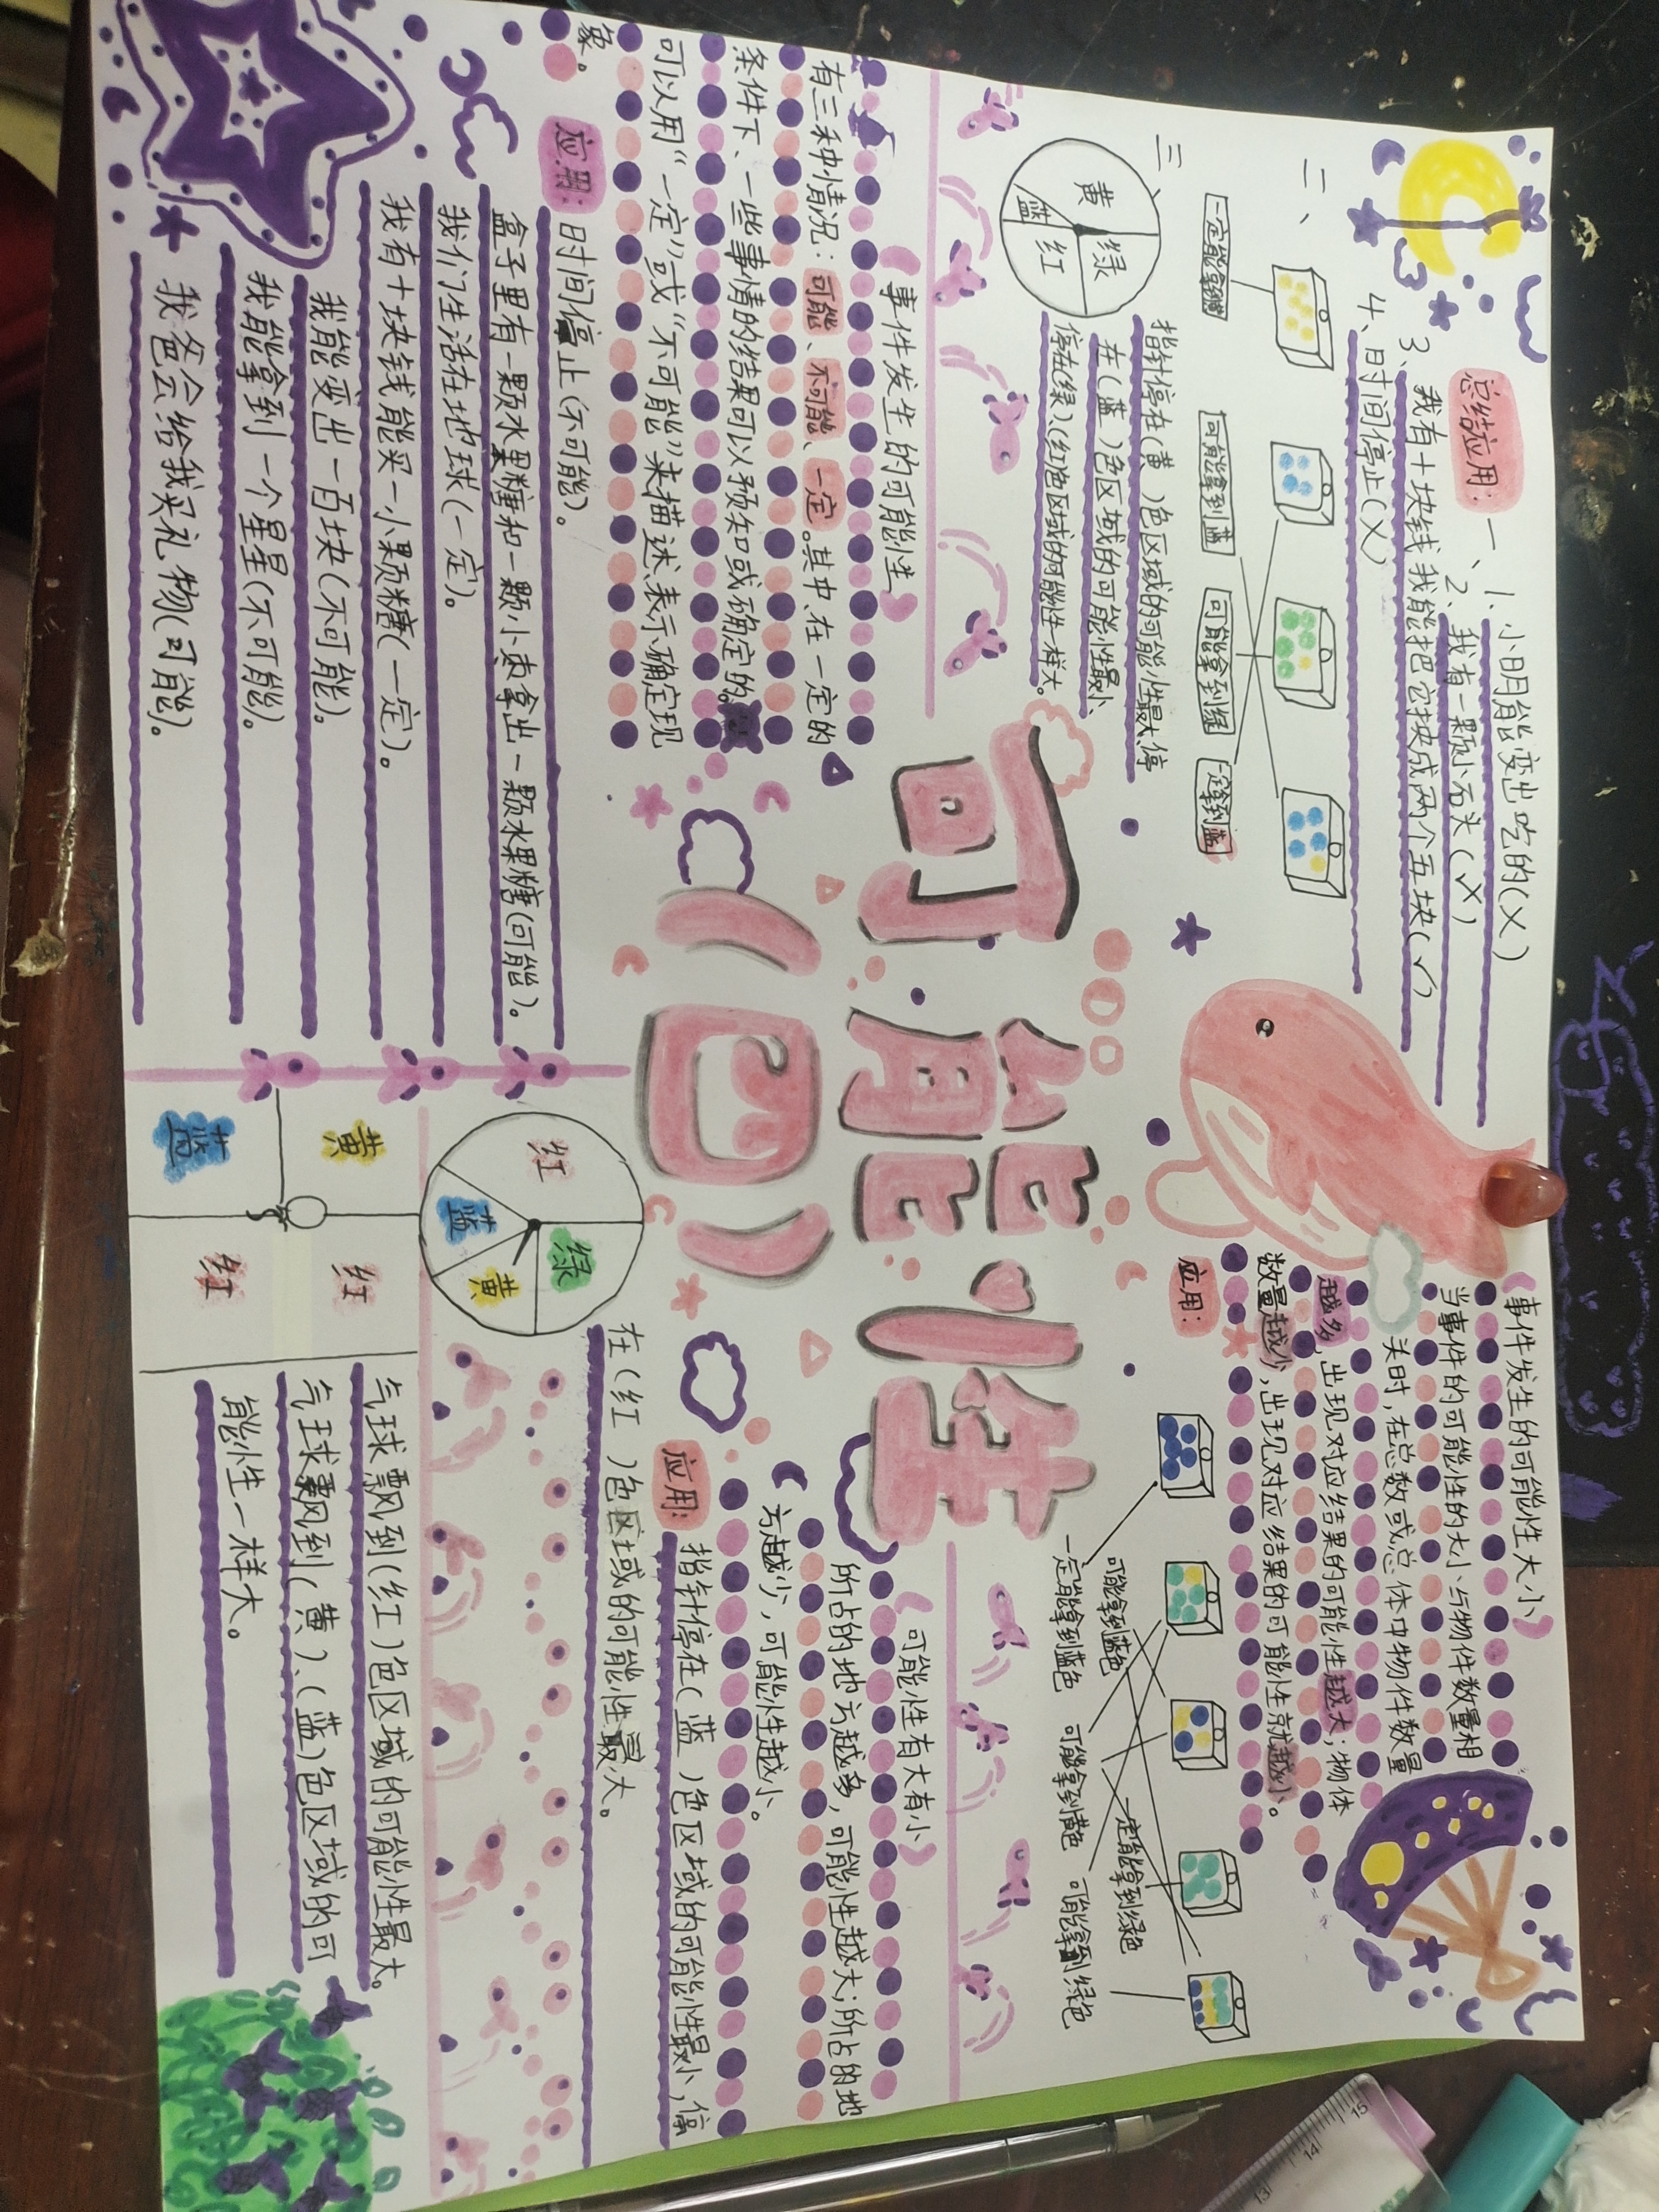 可能性
(四)
总结应用:
一、1.小明能变出吃的(X)
2、我有一颗小石头(X)
3、我有十块钱我能把它换成两个五块(✓)
4、时间停止(X)
二、
可能拿到蓝
可能拿到绿
一定拿到蓝
三、
黄
绿
蓝
红
指针停在(黄)色区域的可能性最大,停
在(蓝)色区域的可能性最小、
停在(绿)(红)色区域的可能性一样大。
事件发生的可能性
有三种情况:可能、不可能、一定。其中,在一定的
条件下、一些事情的结果可以预知或确定的。
可以用“一定”或“不可能”来描述,表示确定现
象。
应用:
时间停止(不可能)。
盒子里有一颗水果糖和一颗小枣拿出一颗水果糖(可能)。
我们生活在地球(一定)。
我有十块钱能买一小颗糖(一定)。
我能变出一百块(不可能)。
我能拿到一个星星(不可能)。
我爸会给我买礼物(可能)。
事件发生的可能性大小
当事件的可能性的大小与物件数量相
关时,在总数或总体中物件数量
越多,出现对应结果的可能性越大;物体
数量越少,出现对应结果的可能性就越小。
应用:
可能拿到蓝色
一定能拿到绿色
一定能拿到蓝色
可能拿到黄色
可能拿到绿色
可能性有大有小
所占的地方越多,可能性越大;所占的地
方越少,可能性越小。
应用:
指针停在(蓝)色区域的可能性最小,停
在(红)色区域的可能性最大。
红
绿
蓝
黄
黄
红
蓝
红
气球飘到(红)色区域的可能性最大。
气球飘到(黄)、(蓝)色区域的可
能性一样大。
15
14
13